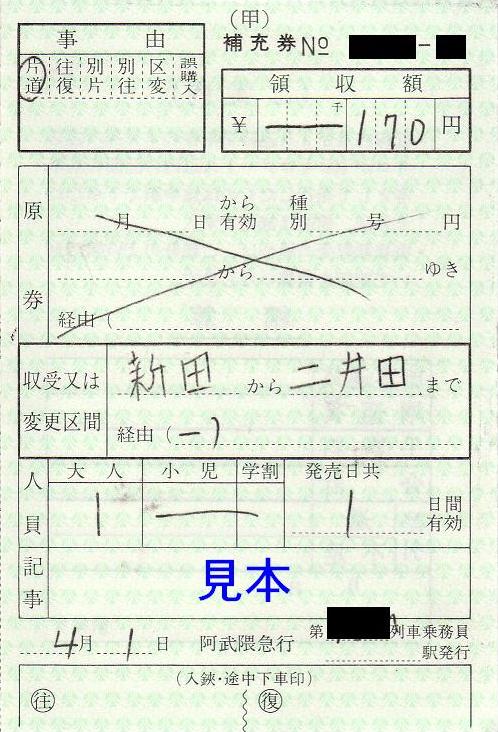 (甲)
事由
補充券 No -
片道 往復 別片 別往 区変 誤購入
領収額
¥ ― 千 170 円
原券
から 種
月 日 有効 別 号 円
から ゆき
経由 (
収受又は 新田 から 二井田 まで
変更区間 経由 (―)
人員 大人 小児 学割 発売日共
1 ― 1 日間有効
記事
見本
第 列車乗務員
4月 1日 阿武隈急行 駅発行
(入鋏・途中下車印)
往 復